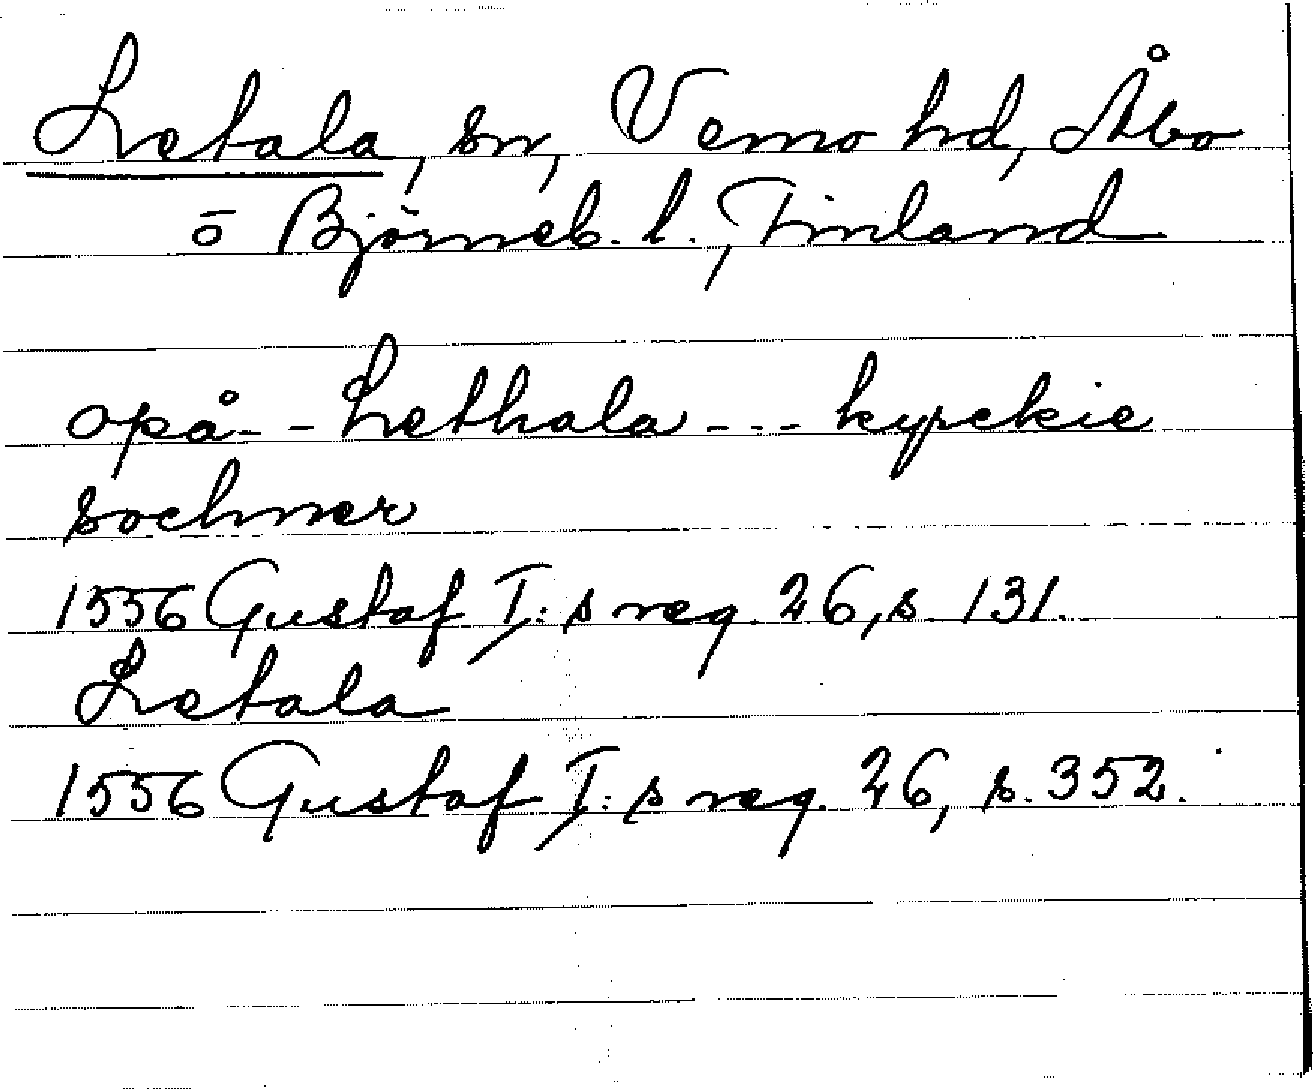 Letala, sn, Vemo hd, Åbo
o Björneb. l., Finland
opå - - Lethala - - - kyrckie
sochner
1556 Gustaf I:s reg. 26, s. 131.
Letala
1556 Gustaf I:s reg. 26, s. 352.